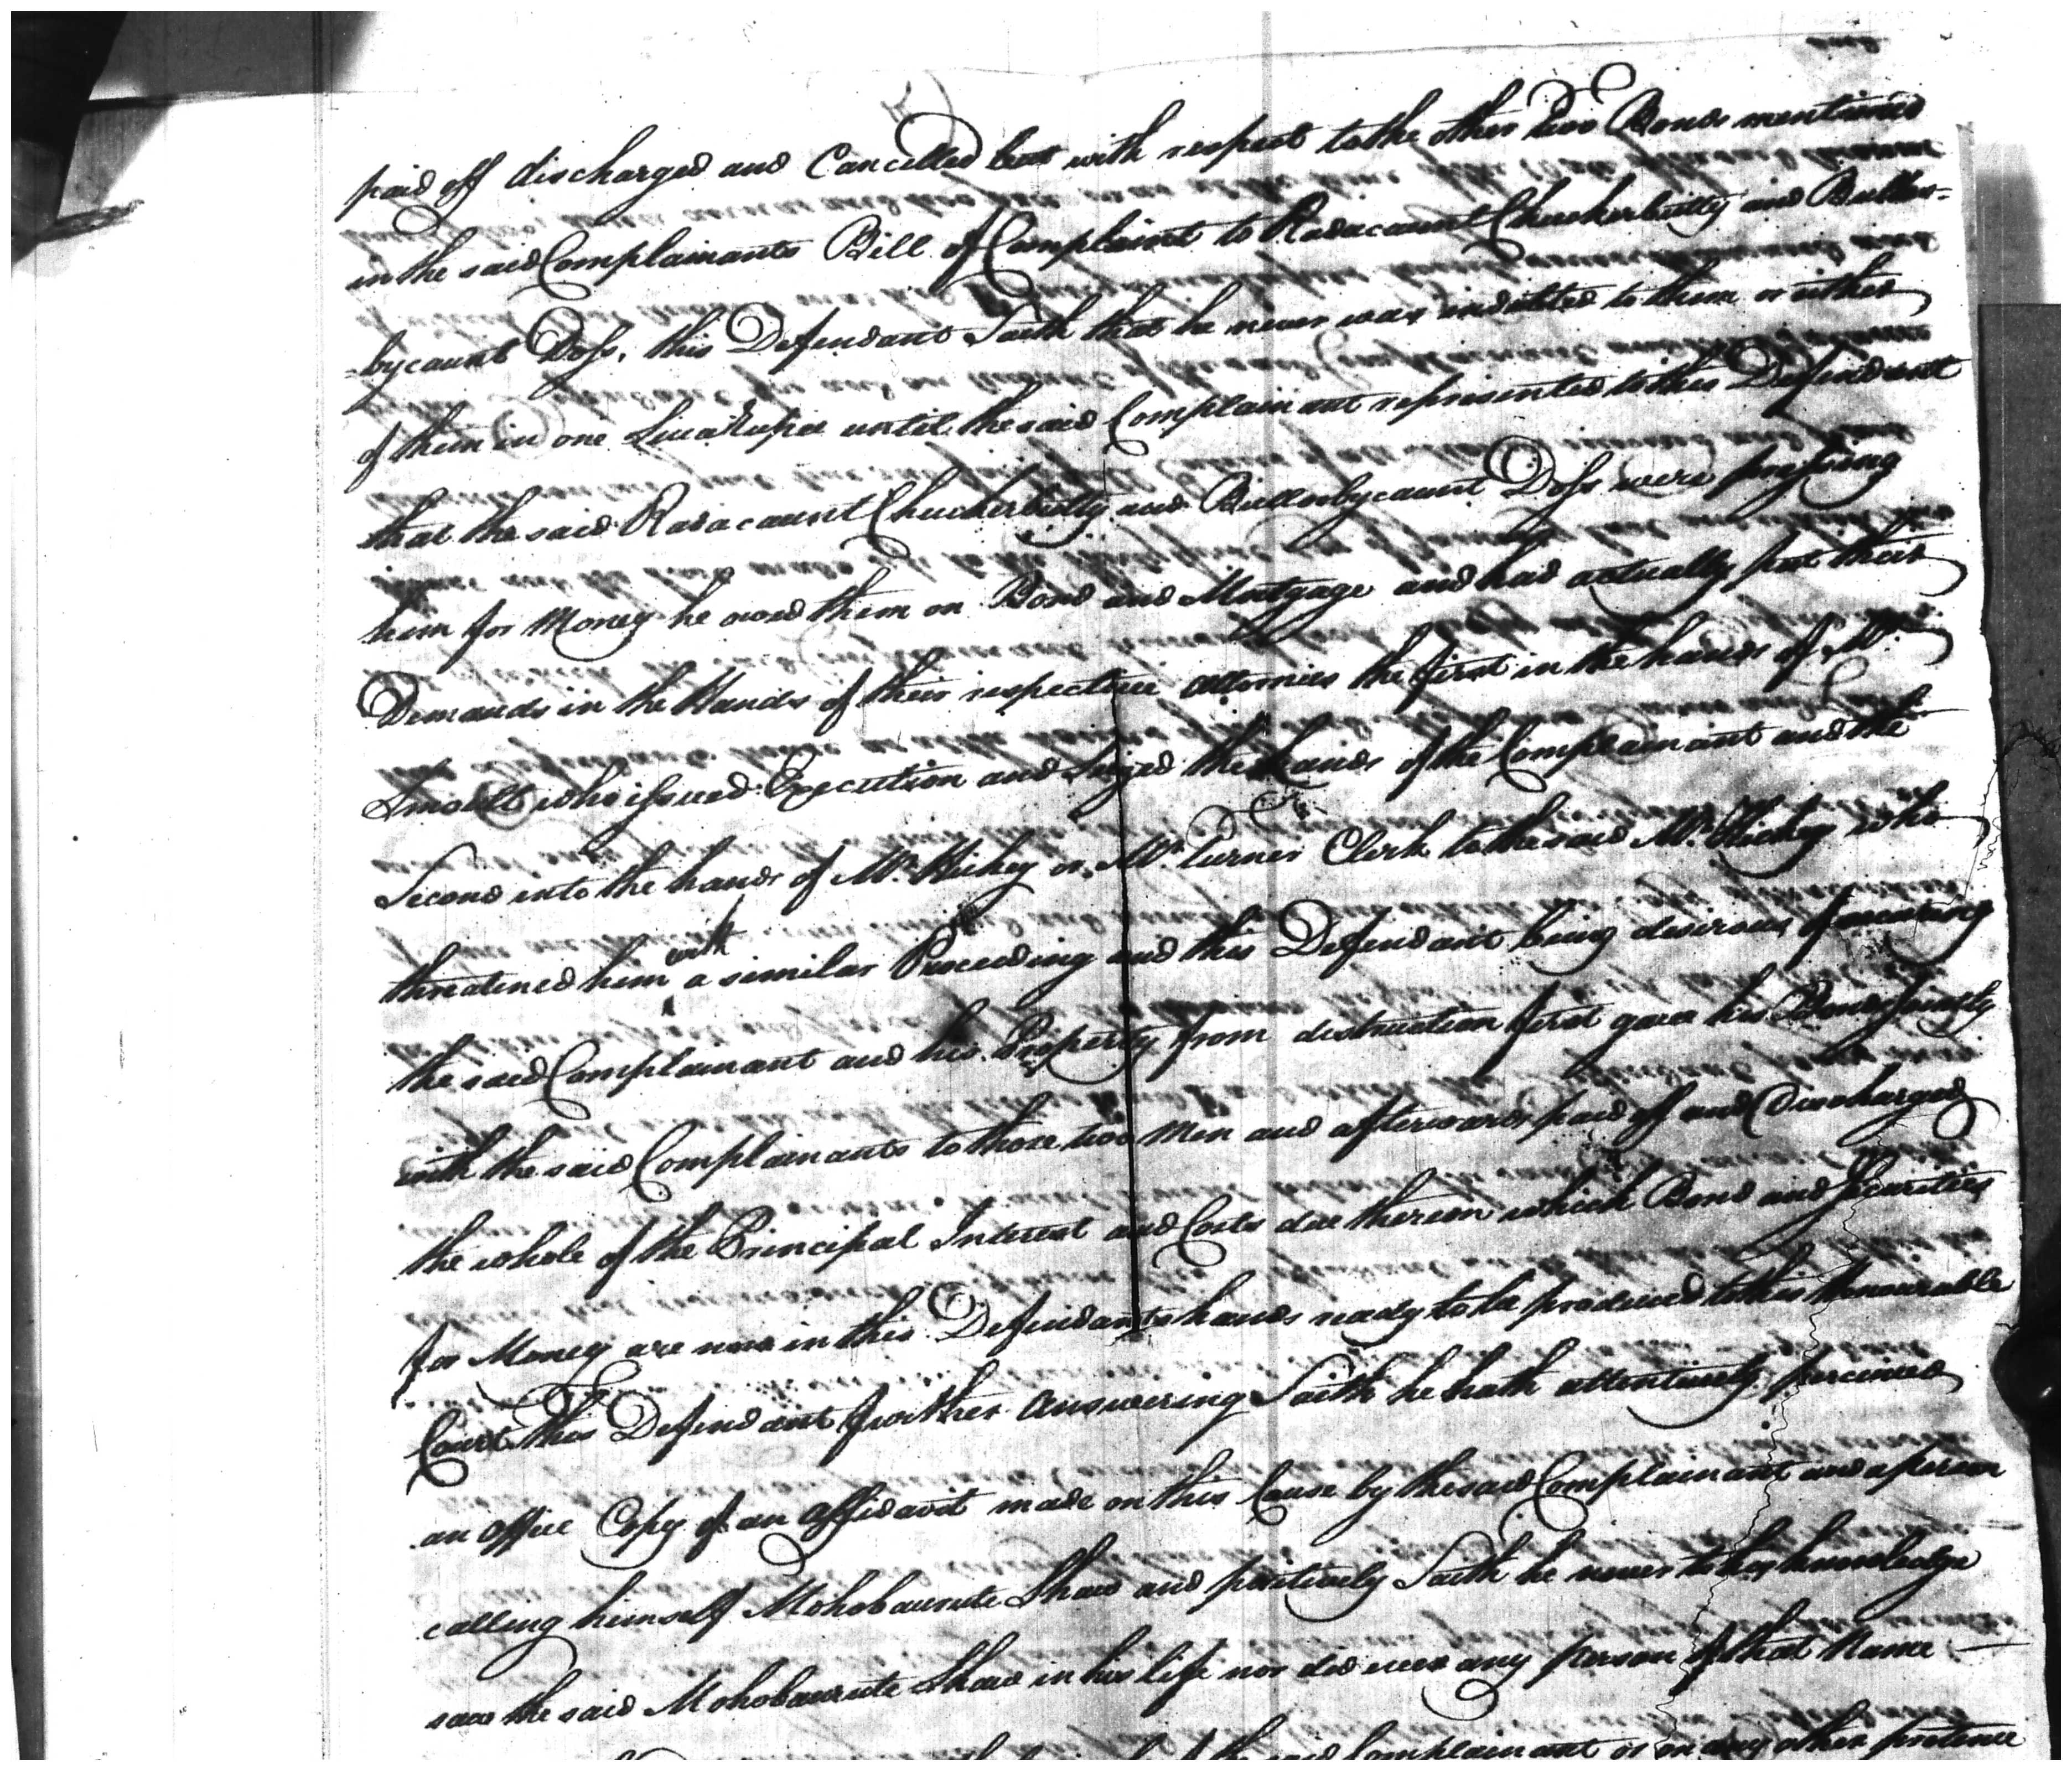 paid off discharged and Cancelled but with respect to the other two Bonds mentioned
in the said Complainants Bill of Complaint to Radacaunt Chuckerbutty and Bullub=
=bycaunt Doss, this Defendant Saith that he never was indebted to them or either
of them in one Sicca Rupee until the said Complainant represented to this Defendant
that the said Radacaunt Chuckerbutty and Bullubbycaunt Doss were pressing
him for Money he owed them on Bond and Mortgage and had actually put their
Demands in the Hands of their respective Attornies the first in the hands of Mr.
Smoult who issued Execution and Seized the Lands of the Complainant and the
Second into the hands of Mr. Hickey or Mr. Turner Clerk to the said Mr. Hickey who
threatened him with a similar Proceeding and this Defendant being desirous of
the said Complainant and his Property from destruction first gave his Bonds jointly
with the said Complainants to those two Men and afterwards paid off and Discharged
the whole of the Principal Interest and Costs due thereon which Bond and Securities
for Money are now in this Defendants hands ready to be produced to this Honourable
Court this Defendant further Answering Saith he hath attentively perused
an office Copy of an Affidavit made on this Cause by the said Complainant and a person
calling himself Mohobaunte Shaw and positively Saith he never to his knowledge
saw the said Mohobaunte Shaw in his life nor did ever any person of that Name
the said Complainant or on any other pretence